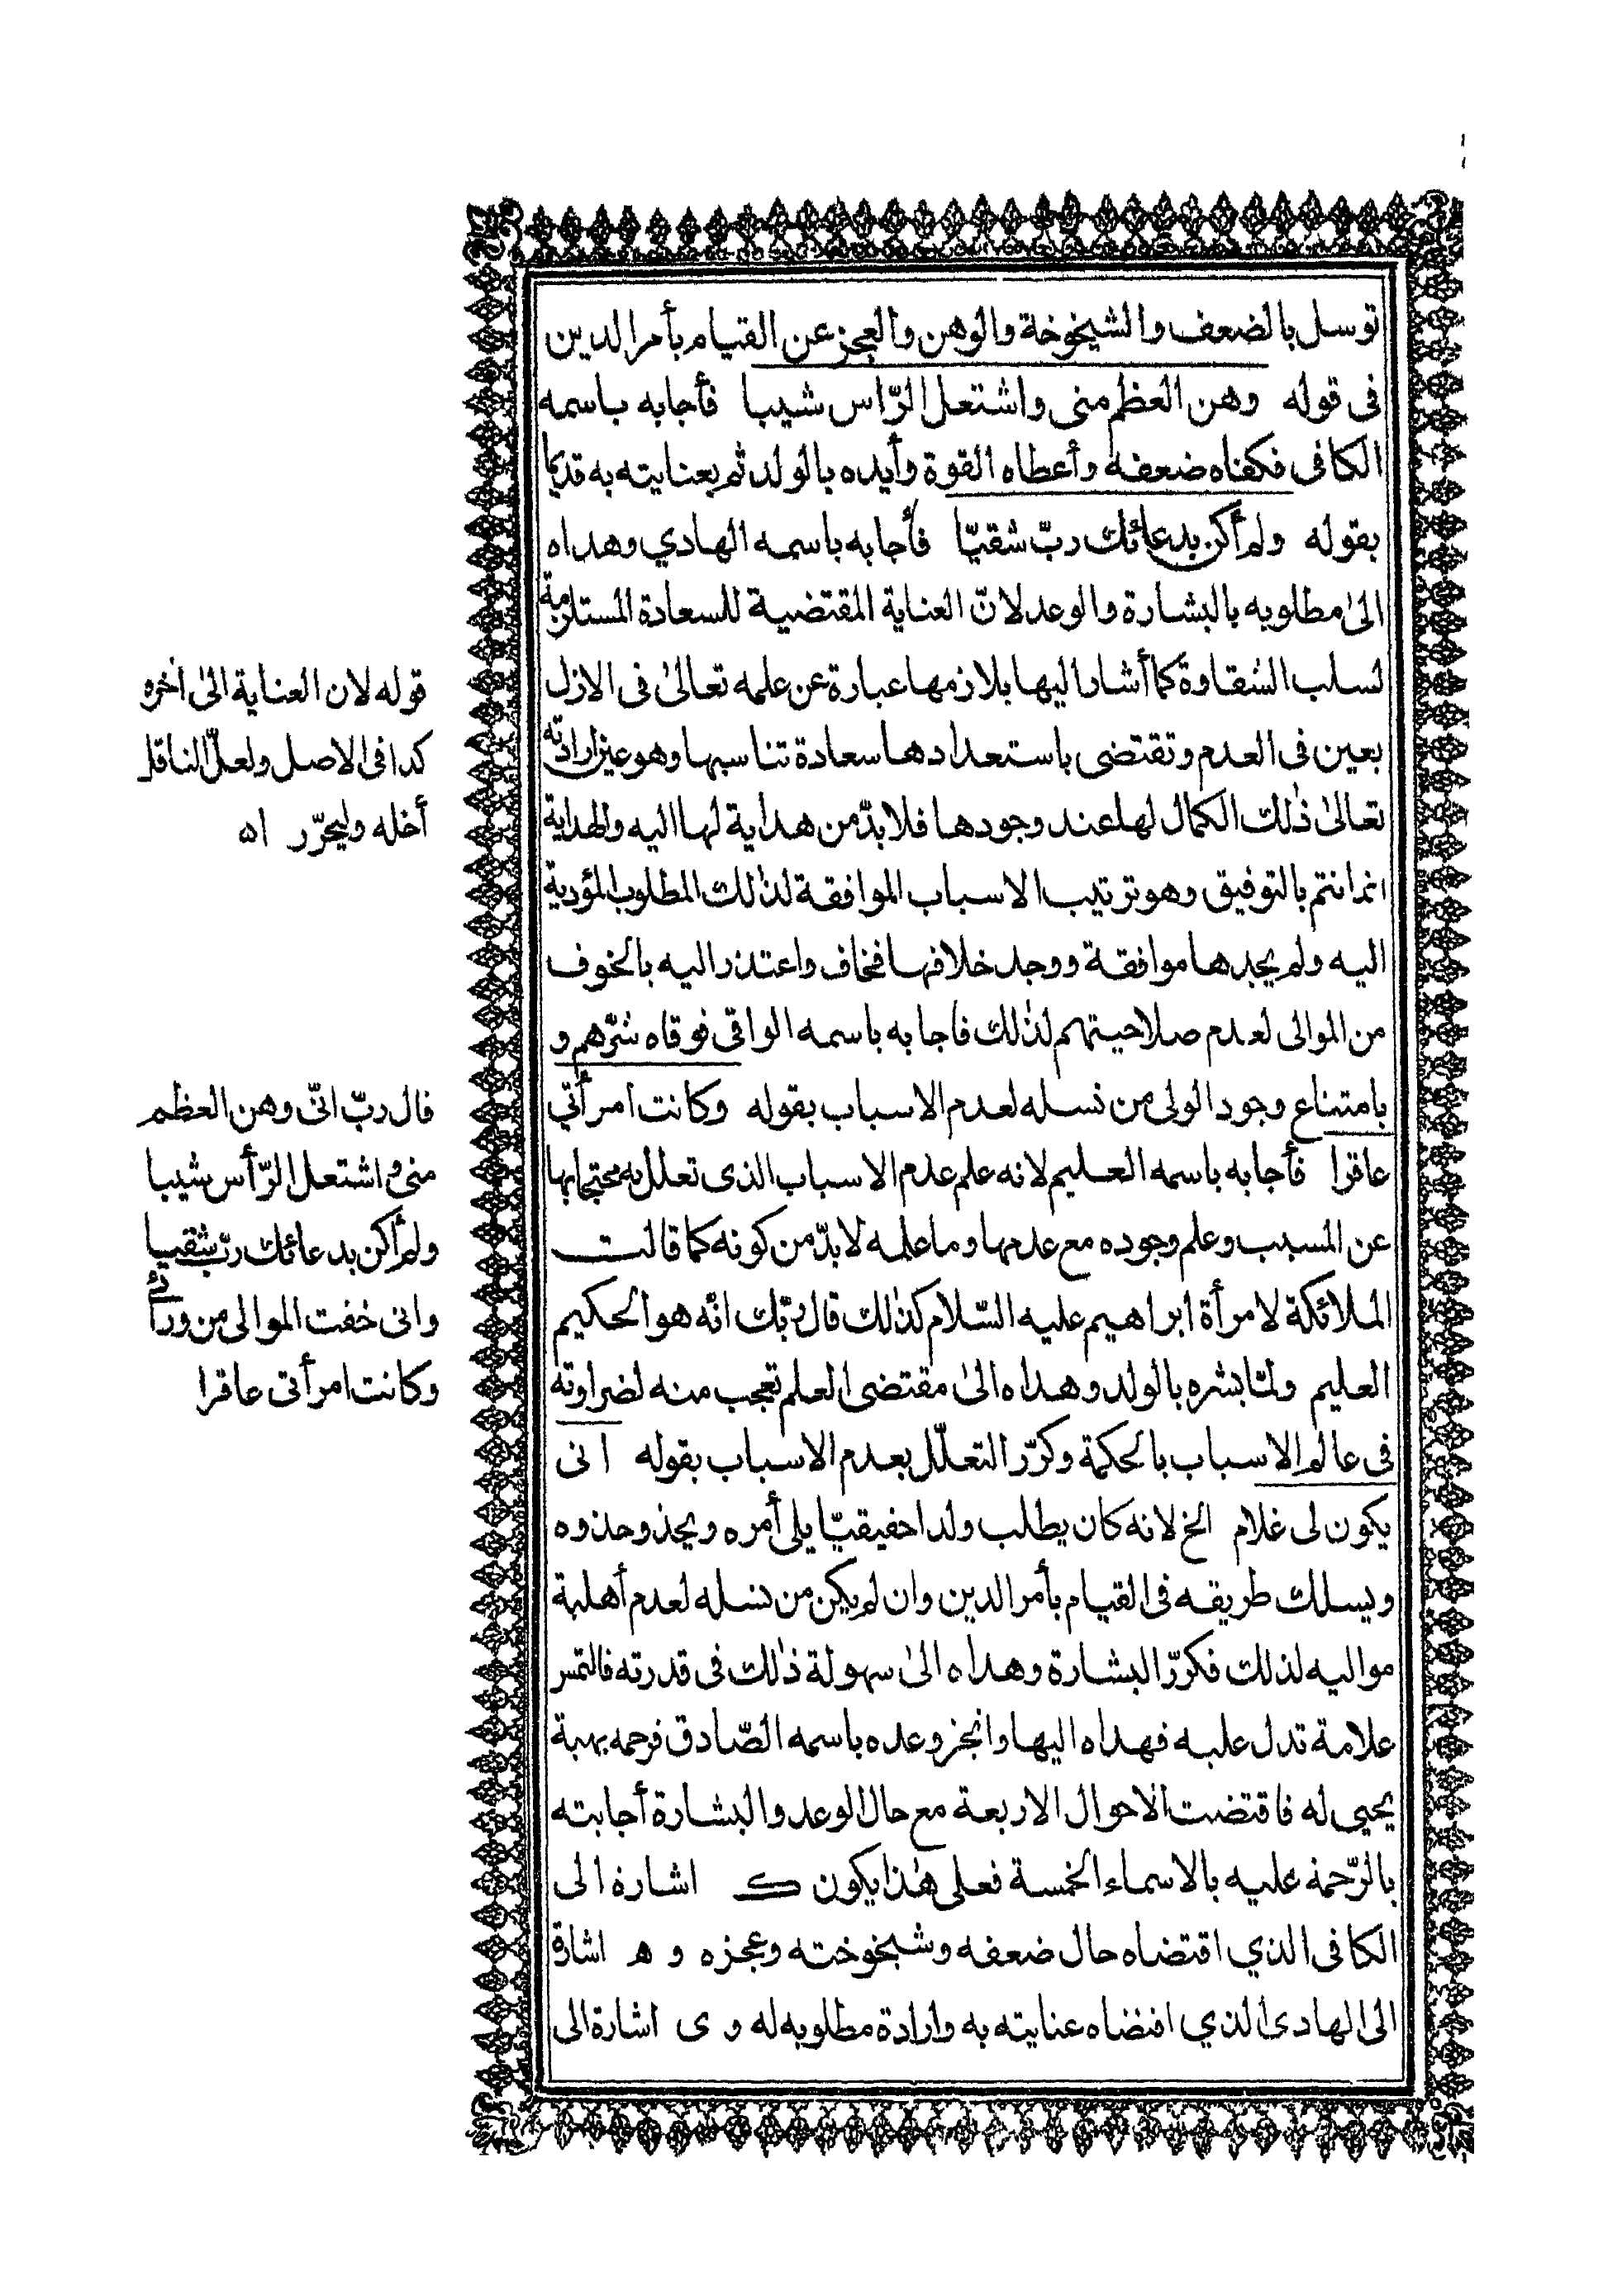 توسل بالضعف والشيخوخة والوهن والعجز عن القيام بأمر الدين
فى قوله وهن العظم منى واشتعل الرّاس شيبا فأجابه باسمه
الكافى فكفاه ضعفه وأعطاه القوة وأيده بالولد ثم بعنايته به قديما
بقوله ولم أكن بدعائك ربّ شقيّا فأجابه باسمه الهادي وهداه
الىٰ مطلوبه بالبشارة والوعد لانّ العناية المقتضية للسعادة المستلزمة
لسلب الشقاوة كما أشار اليها بلازمها عبارة عن علمه تعالىٰ فى الازل
بعين فى العدم وتقتضى باستعدادها سعادة تناسبها وهو عين ارادته
تعالىٰ ذٰلك الكمال لها عند وجودها فلا بدّ من هداية لها اليه والهداية
انما تتم بالتوفيق وهو ترتيب الاسباب الموافقة لذٰلك المطلوب المؤدية
اليه ولم يجدها موافقة ووجد خلافها فخاف واعتذر اليه بالخوف
من الموالى لعدم صلاحيتهم لذٰلك فاجابه باسمه الواقى فوقاه شرّهم و
بامتناع وجود الولى من نسله لعدم الاسباب بقوله وكانت امرأتي
عاقرا فأجابه باسمه العليم لانه علم عدم الاسباب الذى تعلل به محتجابها
عن المسبب وعلم وجوده مع عدمها وما علمه لا بدّ من كونه كما قالت
الملائكة لامرأة ابراهيم عليه السّلام كذٰلك قال ربّك انّه هو الحكيم
العليم ولمّا بشره بالولد وهداه الىٰ مقتضى العلم تعجب منه لضراوته
فى عالم الاسباب بالحكمة وكرّر التعلّل بعدم الاسباب بقوله انى
يكون لى غلام الخ لانه كان يطلب ولدا حقيقيّا يلى أمره ويحذو حذوه
ويسلك طريقه فى القيام بأمر الدين وان لم يكن من نسله لعدم أهلية
مواليه لذلك فكرّر البشارة وهداه الىٰ سهولة ذٰلك فى قدرته فالتمس
علامة تدل عليه فهداه اليها وانجز وعده باسمه الصّادق فرحمه بهبة
يحيى له فاقتضت الاحوال الاربعة مع حال الوعد والبشارة أجابته
بالرّحمة عليه بالاسماء الخمسة فعلى هٰذا يكون ك اشارة الى
الكافى الذي اقتضاه حال ضعفه وشيخوخته وعجزه و ه اشارة
الى الهادى الذي اقتضاه عنايته به وارادة مطلوبه له و ى اشارة الى
قوله لان العناية الىٰ آخره
كذا فى الاصل ولعلّ الناقل
أخله وليحرّر اه
قال ربّ انّى وهن العظم
منى واشتعل الرّأس شيبا
ولم أكن بدعائك ربّ شقيا
وانى خفت الموالى من ورآئى
وكانت امرأتى عاقرا